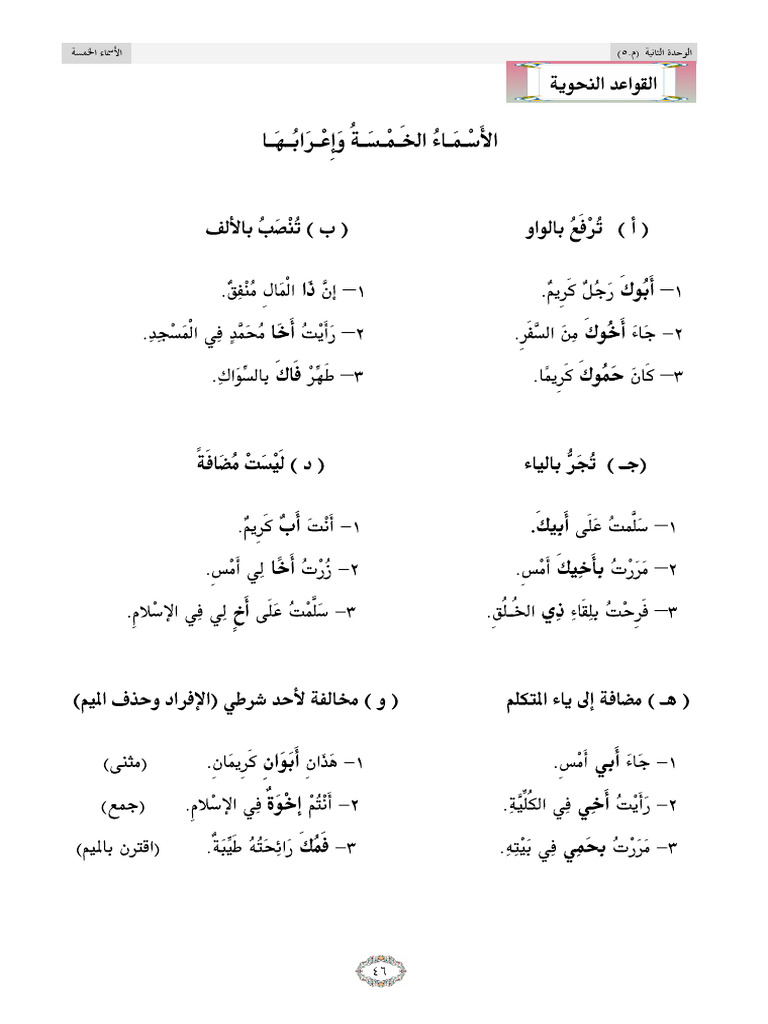 الوحدة الثانية (م.٥)
الأسماء الخمسة
القواعد النحوية
الأَسْمَاءُ الخَمْسَةُ وَإِعْرَابُهَا
( أ ) تُرْفَعُ بالواو
١– أَبُوكَ رَجُلٌ كَرِيمٌ.
٢– جَاءَ أَخُوكَ مِنَ السَّفَرِ.
٣– كَانَ حَمُوكَ كَرِيمًا.
( ب ) تُنْصَبُ بالألف
١– إنَّ ذَا الْمَالِ مُنْفِقٌ.
٢– رَأَيْتُ أَخَا مُحَمَّدٍ فِي الْمَسْجِدِ.
٣– طَهِّرْ فَاكَ بالسِّوَاكِ.
(جـ ) تُجَرُّ بالياء
١– سَلَّمتُ عَلَى أَبِيكَ.
٢– مَرَرْتُ بأَخِيكَ أَمْسِ.
٣– فَرِحْتُ بلِقَاءِ ذِي الخُلُقِ.
( د ) لَيْسَتْ مُضَافَةً
١– أَنْتَ أَبٌ كَرِيمٌ.
٢– زُرْتُ أَخًا لِي أَمْسِ.
٣– سَلَّمْتُ عَلَى أَخٍ لِي فِي الإسْلامِ.
( هـ ) مضافة إلى ياء المتكلم
١– جَاءَ أَبي أَمْسِ.
٢– رَأَيْتُ أَخِي فِي الكُلِّيَّةِ.
٣– مَرَرْتُ بحَمِي فِي بَيْتِهِ.
( و ) مخالفة لأحد شرطي (الإفراد وحذف الميم)
١– هَذَانِ أَبَوَانِ كَرِيمَانِ. (مثنى)
٢– أَنْتُمْ إخْوَةٌ فِي الإسْلامِ. (جمع)
٣– فَمُكَ رَائِحَتُهُ طَيِّبَةٌ. (اقترن بالميم)
٤٦